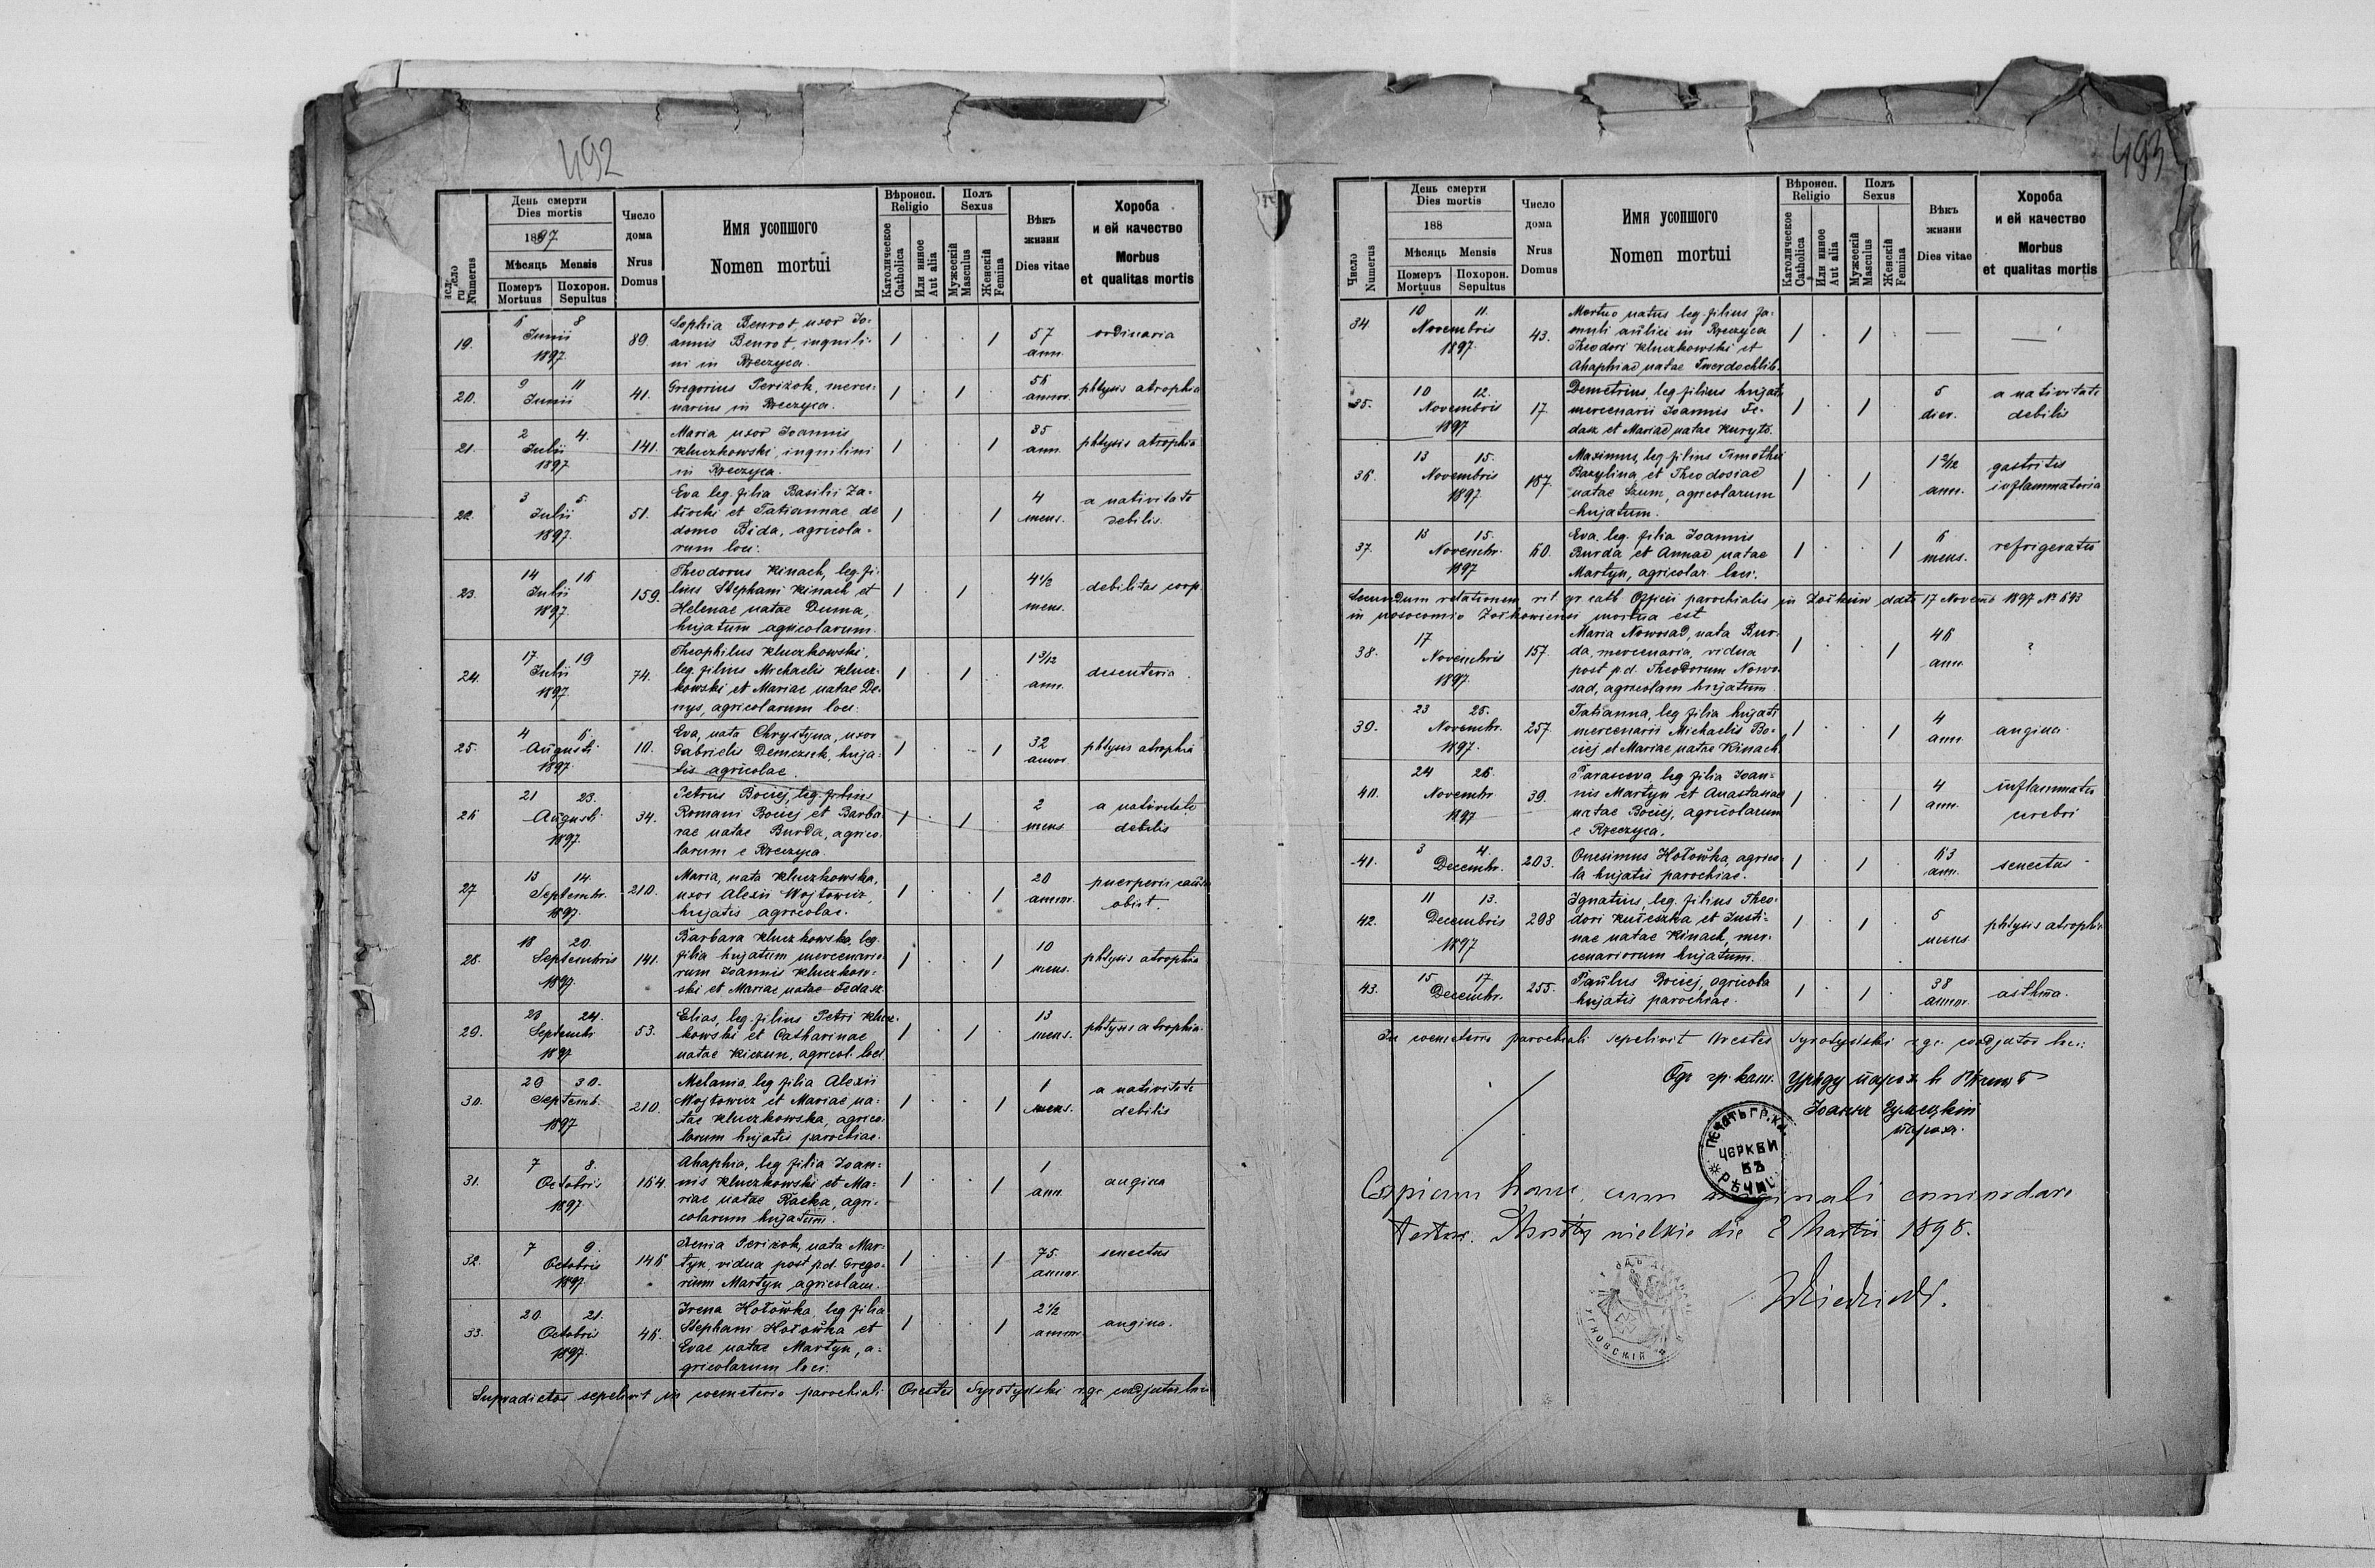 492
Число
Numerus
День смерти
Dies mortis
1897
Мѣсяць Mensis
Померъ Похорон.
Mortuus Sepultus
Число
дома
Nrus
Domus
Имя усопшого
Nomen mortui
Вѣроисп.
Religio
Католическое
Catholica
Или инное
Aut alia
Полъ
Sexus
Мужескій
Masculus
Женскій
Femina
Вѣкъ
жизни
Dies vitae
Хороба
и ей качество
Morbus
et qualitas mortis
19. 6 8 Junii 1897. 89.
Sophia Benrot, uxor Jo-
annis Benrot, inquili-
ni in Rzeczyca.
1 . . 1 57 ann. ordinaria
20. 9 11 Junii 41.
Gregorius Perizok, merce-
narius in Rzeczyca.
1 . 1 . 56 annor. phtysis atrophia
21. 2 4. Julii 1897 141.
Maria uxor Joannis
Kluczkowski, inquilini
in Rzeczyca.
1 . . 1 35 ann. phtysis atrophia
22. 3 5. Julii 1897. 51.
Eva leg. filia Basilii Za-
błocki et Tatiannae de
domo Bida, agricola-
rum loci.
1 . . 1 4 mens. a nativitate
debilis.
23. 14 16 Julii 1897. 159.
Theodorus Kinach, leg. fi-
lius Stephani Kinach et
Helenae natae Duma,
hujatum agricolarum.
1 . 1 . 4 1/2 mens. debilitas corp.
24. 17. 19 Julii 1897. 74.
Theophilus Kluczkowski,
leg. filius Michaelis Klucz-
kowski et Mariae natae De-
nys, agricolarum loci.
1 . 1 . 1 3/12 ann. desenteria
25. 4 6. Augusti 1897. 10.
Eva, nata Chrystyna, uxor
Gabrielis Demczuk, huja-
tis agricolae.
1 . . 1 32 annor. phtysis atrophia
26 21 23. Augusti 1897. 34.
Petrus Bociej, leg. filius
Romani Bociej et Barba-
rae natae Burda, agrico-
larum e Rzeczyca.
1 . 1 . 2 mens a nativitate
debilis
27 13 14. Septembr. 1897. 210.
Maria, nata Kluczkowska,
uxor Alexii Wojtowicz,
hujatis agricolae.
1 . . 1 20 annor. puerperii causa
obiit.
28. 18 20. Septembris 1897. 141.
Barbara Kluczkowska, leg.
filia hujatum mercenario-
rum Joannis Kluczkow-
ski et Mariae natae Fedasz.
1 . . 1 10 mens. phtysis atrophia
29. 23 24. Septembr 1897 53.
Elias, leg. filius Petri Klucz-
kowski et Catharinae
natae Kiczun, agricol. loci.
1 . 1 . 13 mens. phtysis atrophia.
30. 29 30. Septemb. 1897 210.
Melania, leg. filia Alexii
Wojtowicz et Mariae na-
tae Kluczkowska, agrico-
larum hujatis parochiae.
1 . . 1 1 mens. a nativitate
debilis
31. 7 8. Octobris 1897. 164.
Ahaphia, leg. filia Joan-
nis Kluczkowski et Ma-
riae natae Raczka, agri-
colarum hujatum.
1 . . 1 1 ann. angina
32. 7 9. Octobris 1897. 146
Xenia Perizok, nata Mar-
tyn, vidua post p.d. Grego-
rium Martyn agricolam.
1 . 1 75. annor. senectus
33. 20. 21. Octobris 1897. 46.
Irena Hołówka, leg. filia
Stephani Hołówka et
Evae natae Martyn, a-
gricolarum loci.
1 . . 1 2 1/2 annor. angina.
Supradictos sepelivit in coemeterio parochiali Orestes r. gr. coadjutor loci
493
Число
Numerus
День смерти
Dies mortis
188
Мѣсяць Mensis
Померъ Похорон.
Mortuus Sepultus
Число
дома
Nrus
Domus
Имя усопшого
Nomen mortui
Вѣроисп.
Religio
Католическое
Catholica
Или инное
Aut alia
Полъ
Sexus
Мужескій
Masculus
Женскій
Femina
Вѣкъ
жизни
Dies vitae
Хороба
и ей качество
Morbus
et qualitas mortis
34 10 11. Novembris 1897. 43.
Mortuo natus leg. filius fa-
muli aulici in Rzeczyca
Theodori Kluczkowski et
Ahaphiae natae Twerdochlib.
1 . 1 —
35. 10 12. Novembris 1897 17.
Demetrius, leg. filius hujatis
mercenarii Joannis Fe-
dasz et Mariae natae Kuryło.
1 . 1 5 dier. a nativitate
debilis
36. 13 15. Novembris 1897. 187.
Maximus, leg. filius Timothei
Bazylina et Theodosiae
natae Szum, agricolarum
hujatum.
1 . 1 ann. gastritis
inflammatoria
37. 13 15. Novembr. 1897 60.
Eva. leg. filia Joannis
Burda et Annae natae
Martyn, agricolar. loci.
1 . . 1 6 mens. refrigeratio
Secundum relationem rit. gr. cath. Officii parochialis in Żółkiew ddto 17 Novemb 1897 No 693
in nosocomio Żółkowiensi mortua est
38. 17 Novembris 1897. 157.
Maria Nowosad, nata Bur-
da, mercenaria, vidua
post p.d. Theodorum Nowo-
sad, agricolam hujatum
1 1 46 ann. ?
39. 23 25. Novembr. 1897. 257.
Tatianna, leg filia hujatis
mercenarii Michaelis Bo-
ciej et Mariae natae Kinach.
1 . . 1 4 ann. angina.
40. 24 26. Novembr 1897 39.
Parasceva, leg filia Joan-
nis Martyn et Anastasiae
natae Bociej, agricolarum
e Rzeczyca.
1 . . 1 4 ann. inflammatio
cerebri
41. 3 4. Decembr. 203.
Onesimus Hołówka, agrico-
la hujatis parochiae.
1 . 1 63 ann. senectus
42. 11 13. Decembris 1897 298
Ignatius, leg. filius Theo-
dori Kułeszka et Justi-
nae natae Kinach, mer-
cenariorum hujatum.
1 . 1 . 5 mens phtysis atrophia
43. 15 17. Decembr. 255.
Paulus Bociej, agricola
hujatis parochiae.
1 . 1 . 38 annor. asthma.
In coemeterio parochiali sepelivit Orestes r. gr. coadjutor loci.
Отъ гр. кат. Уряду парох. в
Іоаннъ
парохъ.
ПЕЧАТЬ ГР. КАТ.
ЦЕРКВИ
ВЪ
РѢЧИЦИ
Copiam hanc cum originali concordare
testor. Mosty wielkie die 2 Martii 1898.